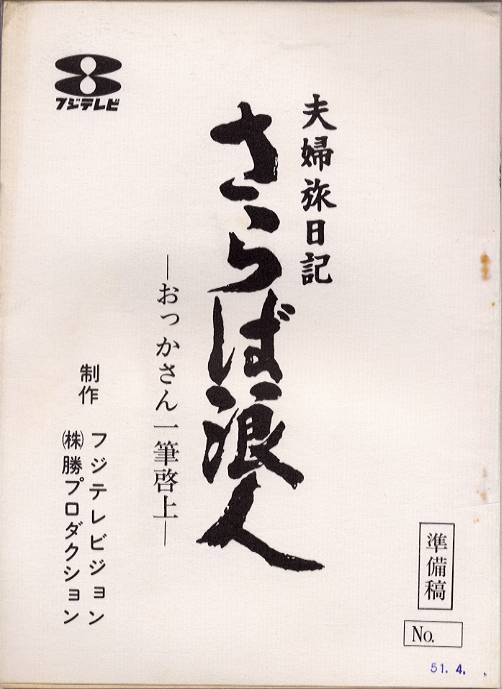 フジテレビ
夫婦旅日記
さらば浪人
―おっかさん一筆啓上―
制作 フジテレビジョン
㈱勝プロダクション
準備稿
No.
51. 4.